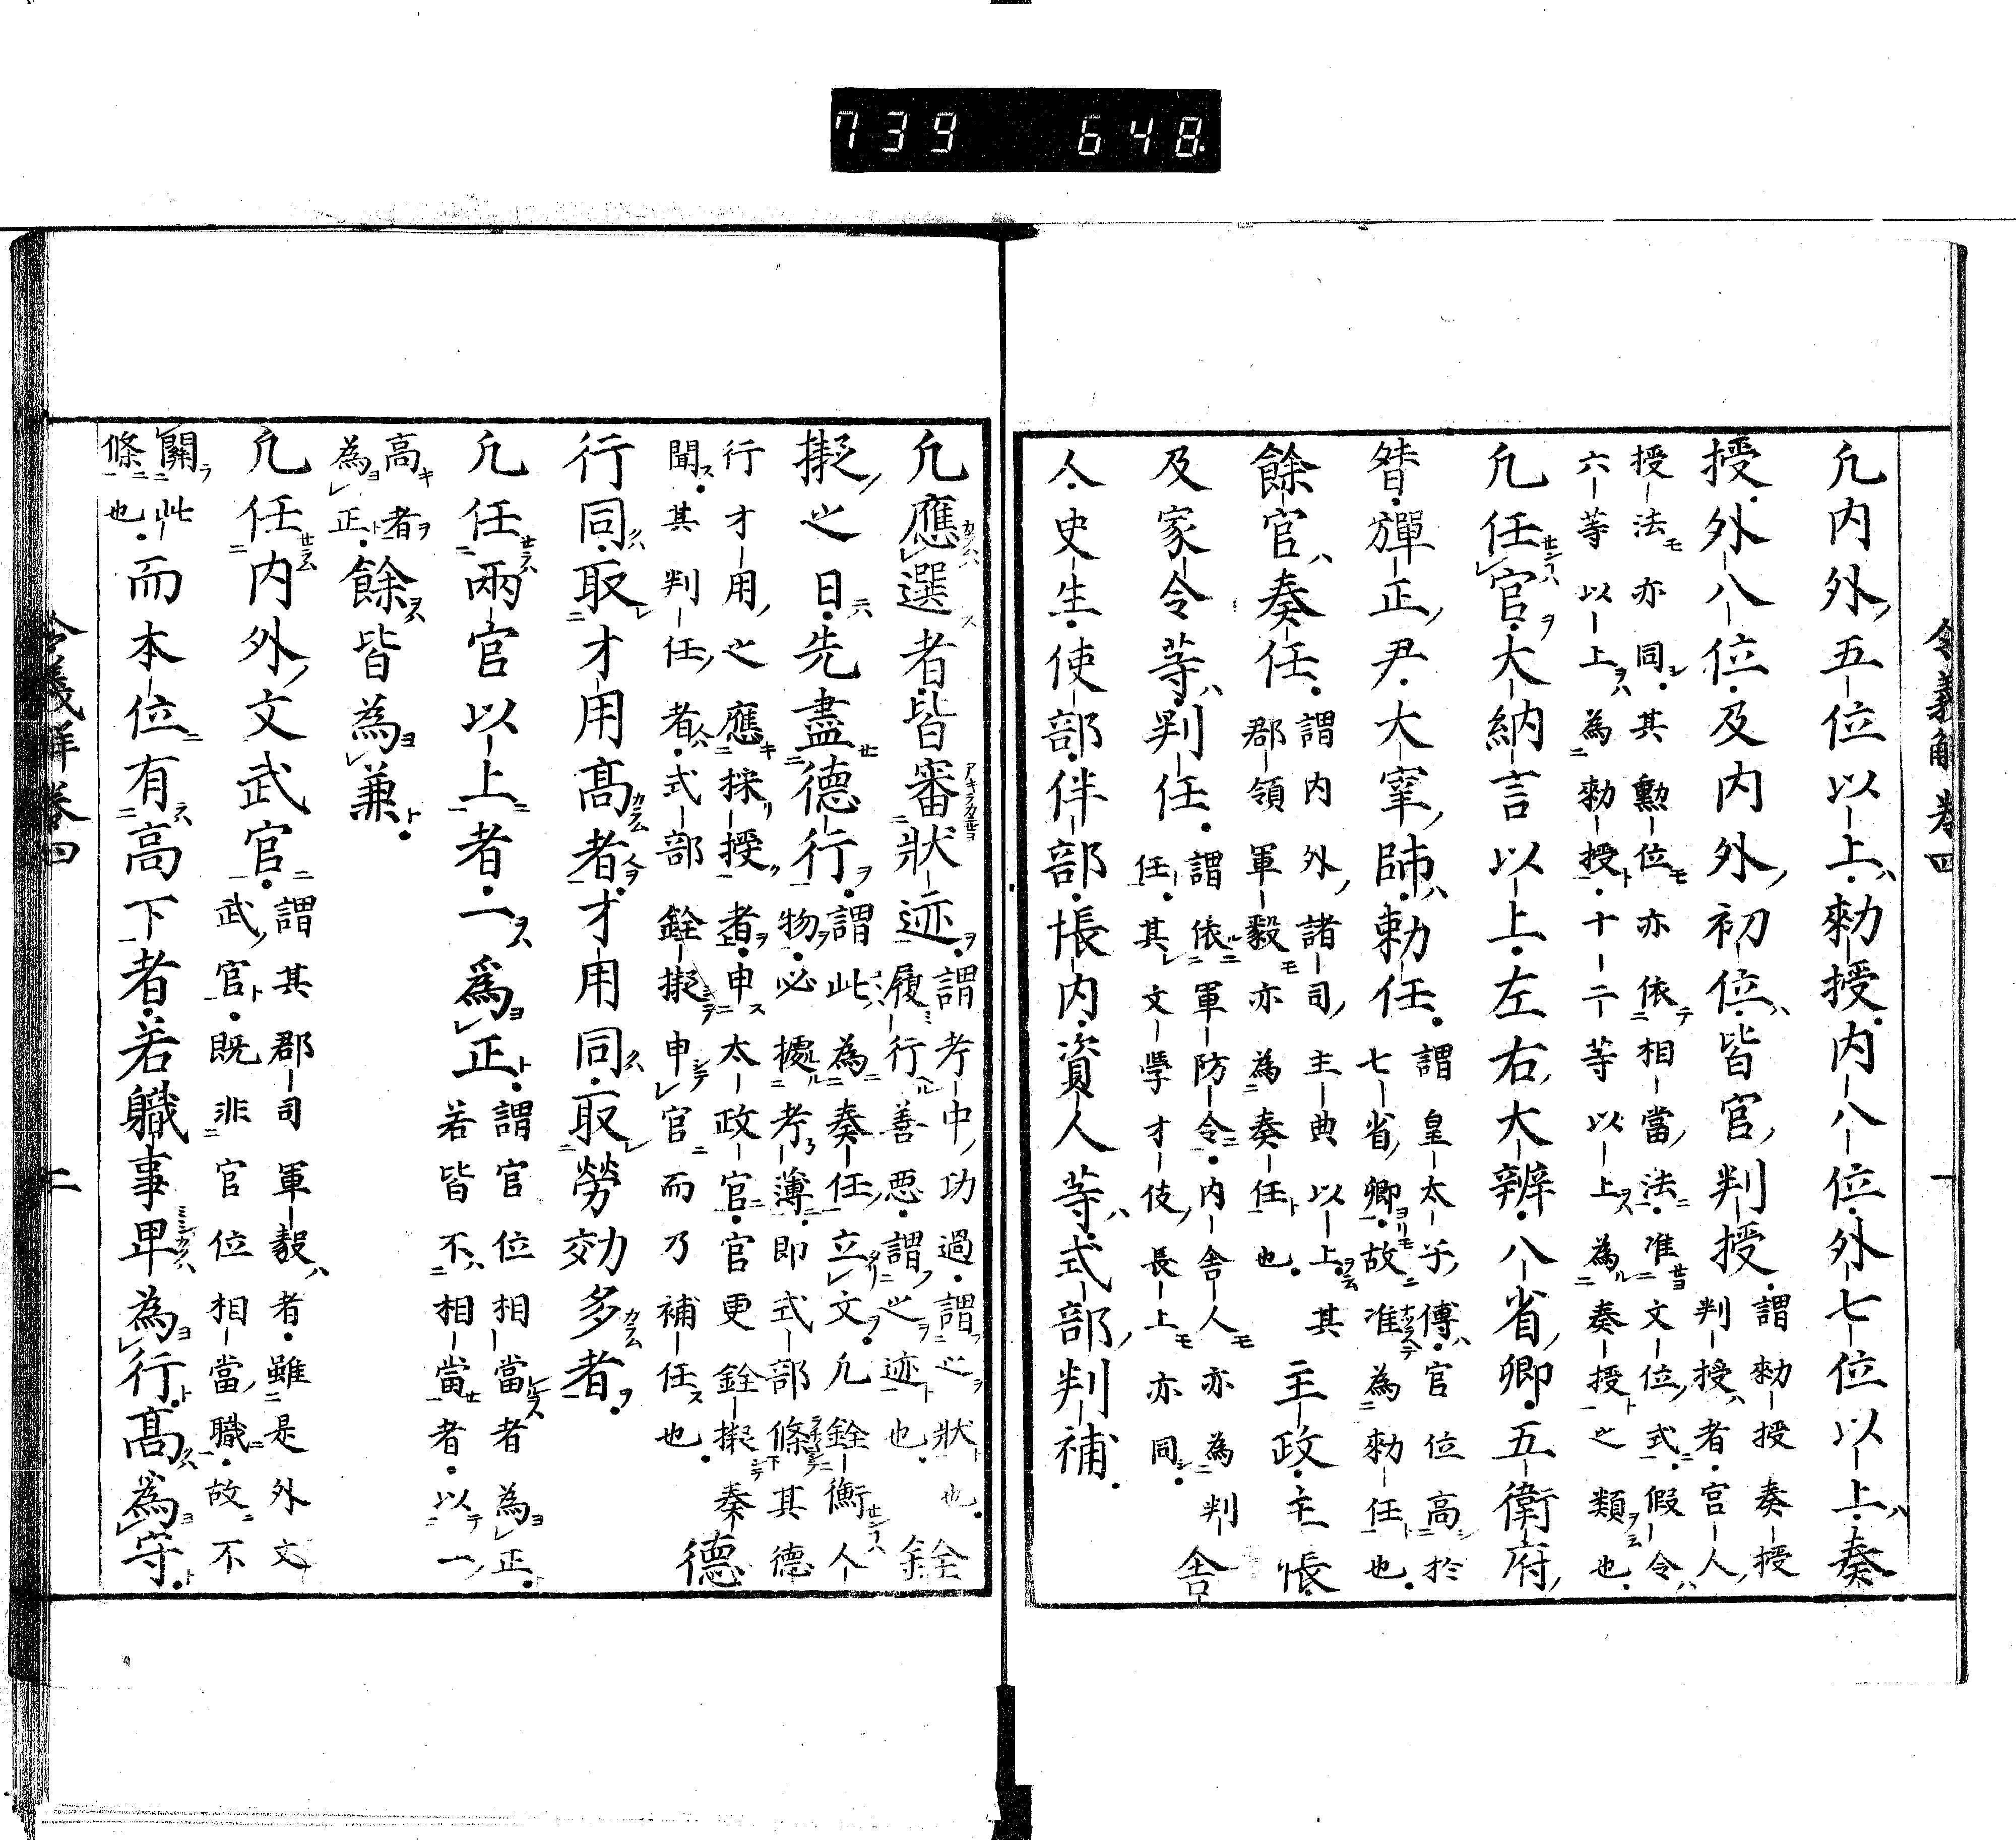 令義解卷四 一
凢内外五位以上勅授内八位外七位以上奏
授外八位及内外初位皆官判授
謂勅授奏授
判授者官人
授法亦同其勲位亦依相當法准文位式假令
六等以上為勅授十二等以上為奏授之類也
凢任官大納言以上左右大辨八省卿五衛府
督彈正尹大宰帥勅任
謂皇太子傅官位高於
七省卿故准為勅任也
餘官奏任
謂内外諸司主典以上其
郡領軍毅亦為奏任也
主政主帳
及家令等判任
謂依軍防令内舎人亦為判
任其文學才伎長上亦同
舎
人史生使部伴部帳内資人等式部判補
凢應選者皆審狀迹
謂考中功過謂之狀也
履行善悪謂之迹也
銓
擬之日先盡德行
謂此為奏任立文凢銓衡人
物必據考簿即式部條其德
行才用之應採授者申太政官官更銓擬奏
聞其判任者式部銓擬申官而乃補任也
德
行同取才用髙者才用同取勞効多者
凢任兩官以上者一爲正
謂官位相當者為正
若皆不相當者以一
高者
為正
餘皆為兼
凢任内外文武官
謂其郡司軍毅者雖是外文
武官既非官位相當職故不
關此
條也
而本位有高下者若職事卑為行髙爲守
令義解卷四 二